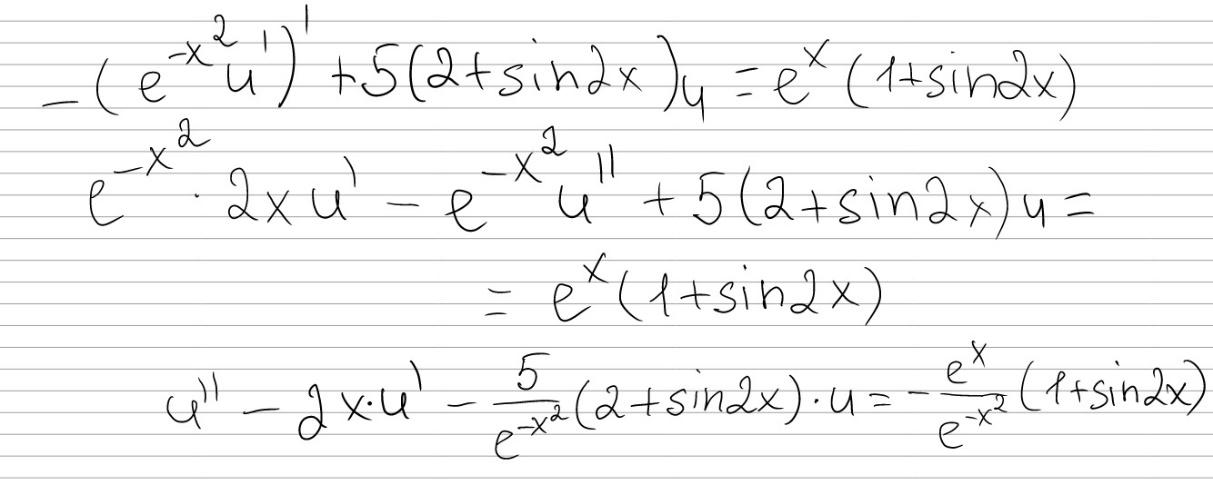 -(e^{-x^2} u')' + 5(2+sin2x)u = e^x (1+sin2x)
e^{-x^2} · 2xu' - e^{-x^2} u'' + 5(2+sin2x)u =
= e^x (1+sin2x)
u'' - 2x·u' - \frac{5}{e^{-x^2}} (2+sin2x)·u = -\frac{e^x}{e^{-x^2}} (1+sin2x)